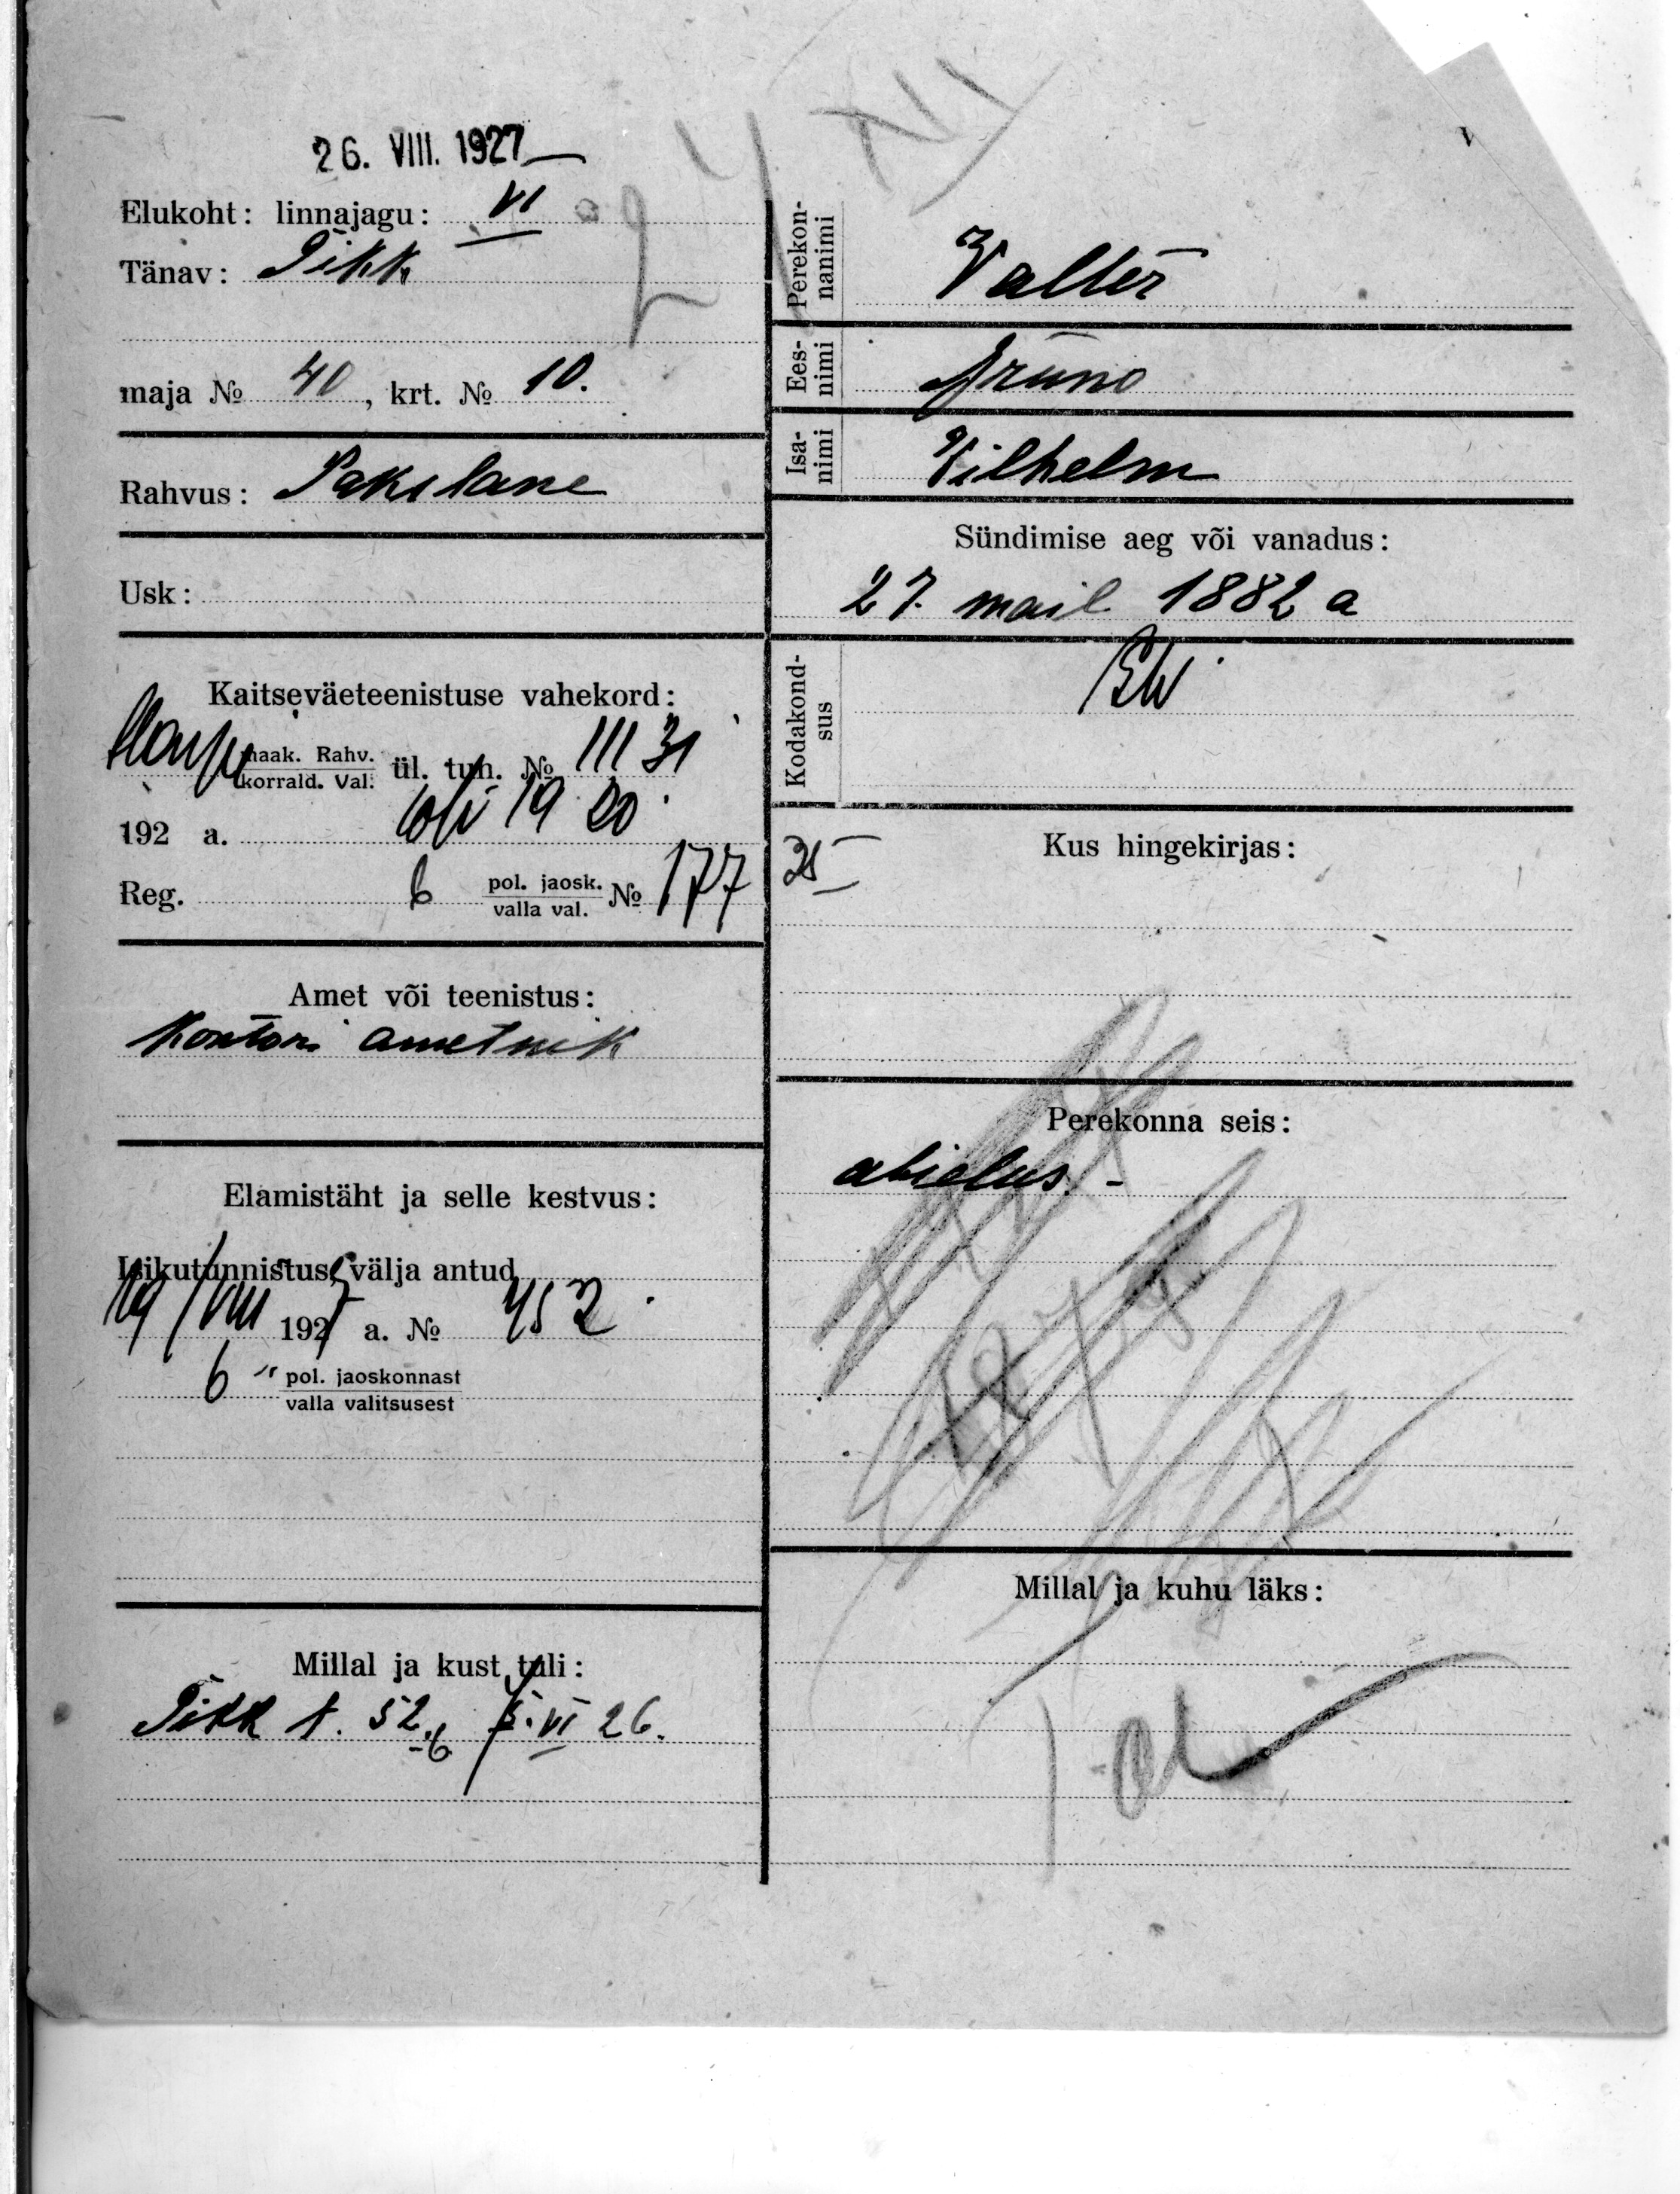 26. VIII. 1927
Elukoht: linnajagu: VI
Tänav: Pikk
maja № 40, krt. № 10.
Rahvus: Sakslane
Usk:
Kaitseväeteenistuse vahekord:
Harju maak. Rahv. ül. tun. № III 31
korrald. Val.
192 a. 19 20
Reg. 6 pol. jaosk. № 177
valla val.
Amet või teenistus:
Kontori ametnik
Elamistäht ja selle kestvus:
Isikutunnistus välja antud
19/VIII 1927 a. № 452
6 pol. jaoskonnast
valla valitsusest
Millal ja kust tuli:
Pikk t. 52-6 VI 26.
Perekonnanimi
Valter
Eesnimi
Bruno
Isanimi
Vilhelm
Sündimise aeg või vanadus:
27. mail 1882 a
Kodakondsus
EW
25
Kus hingekirjas:
Perekonna seis:
abielus. -
Millal ja kuhu läks: